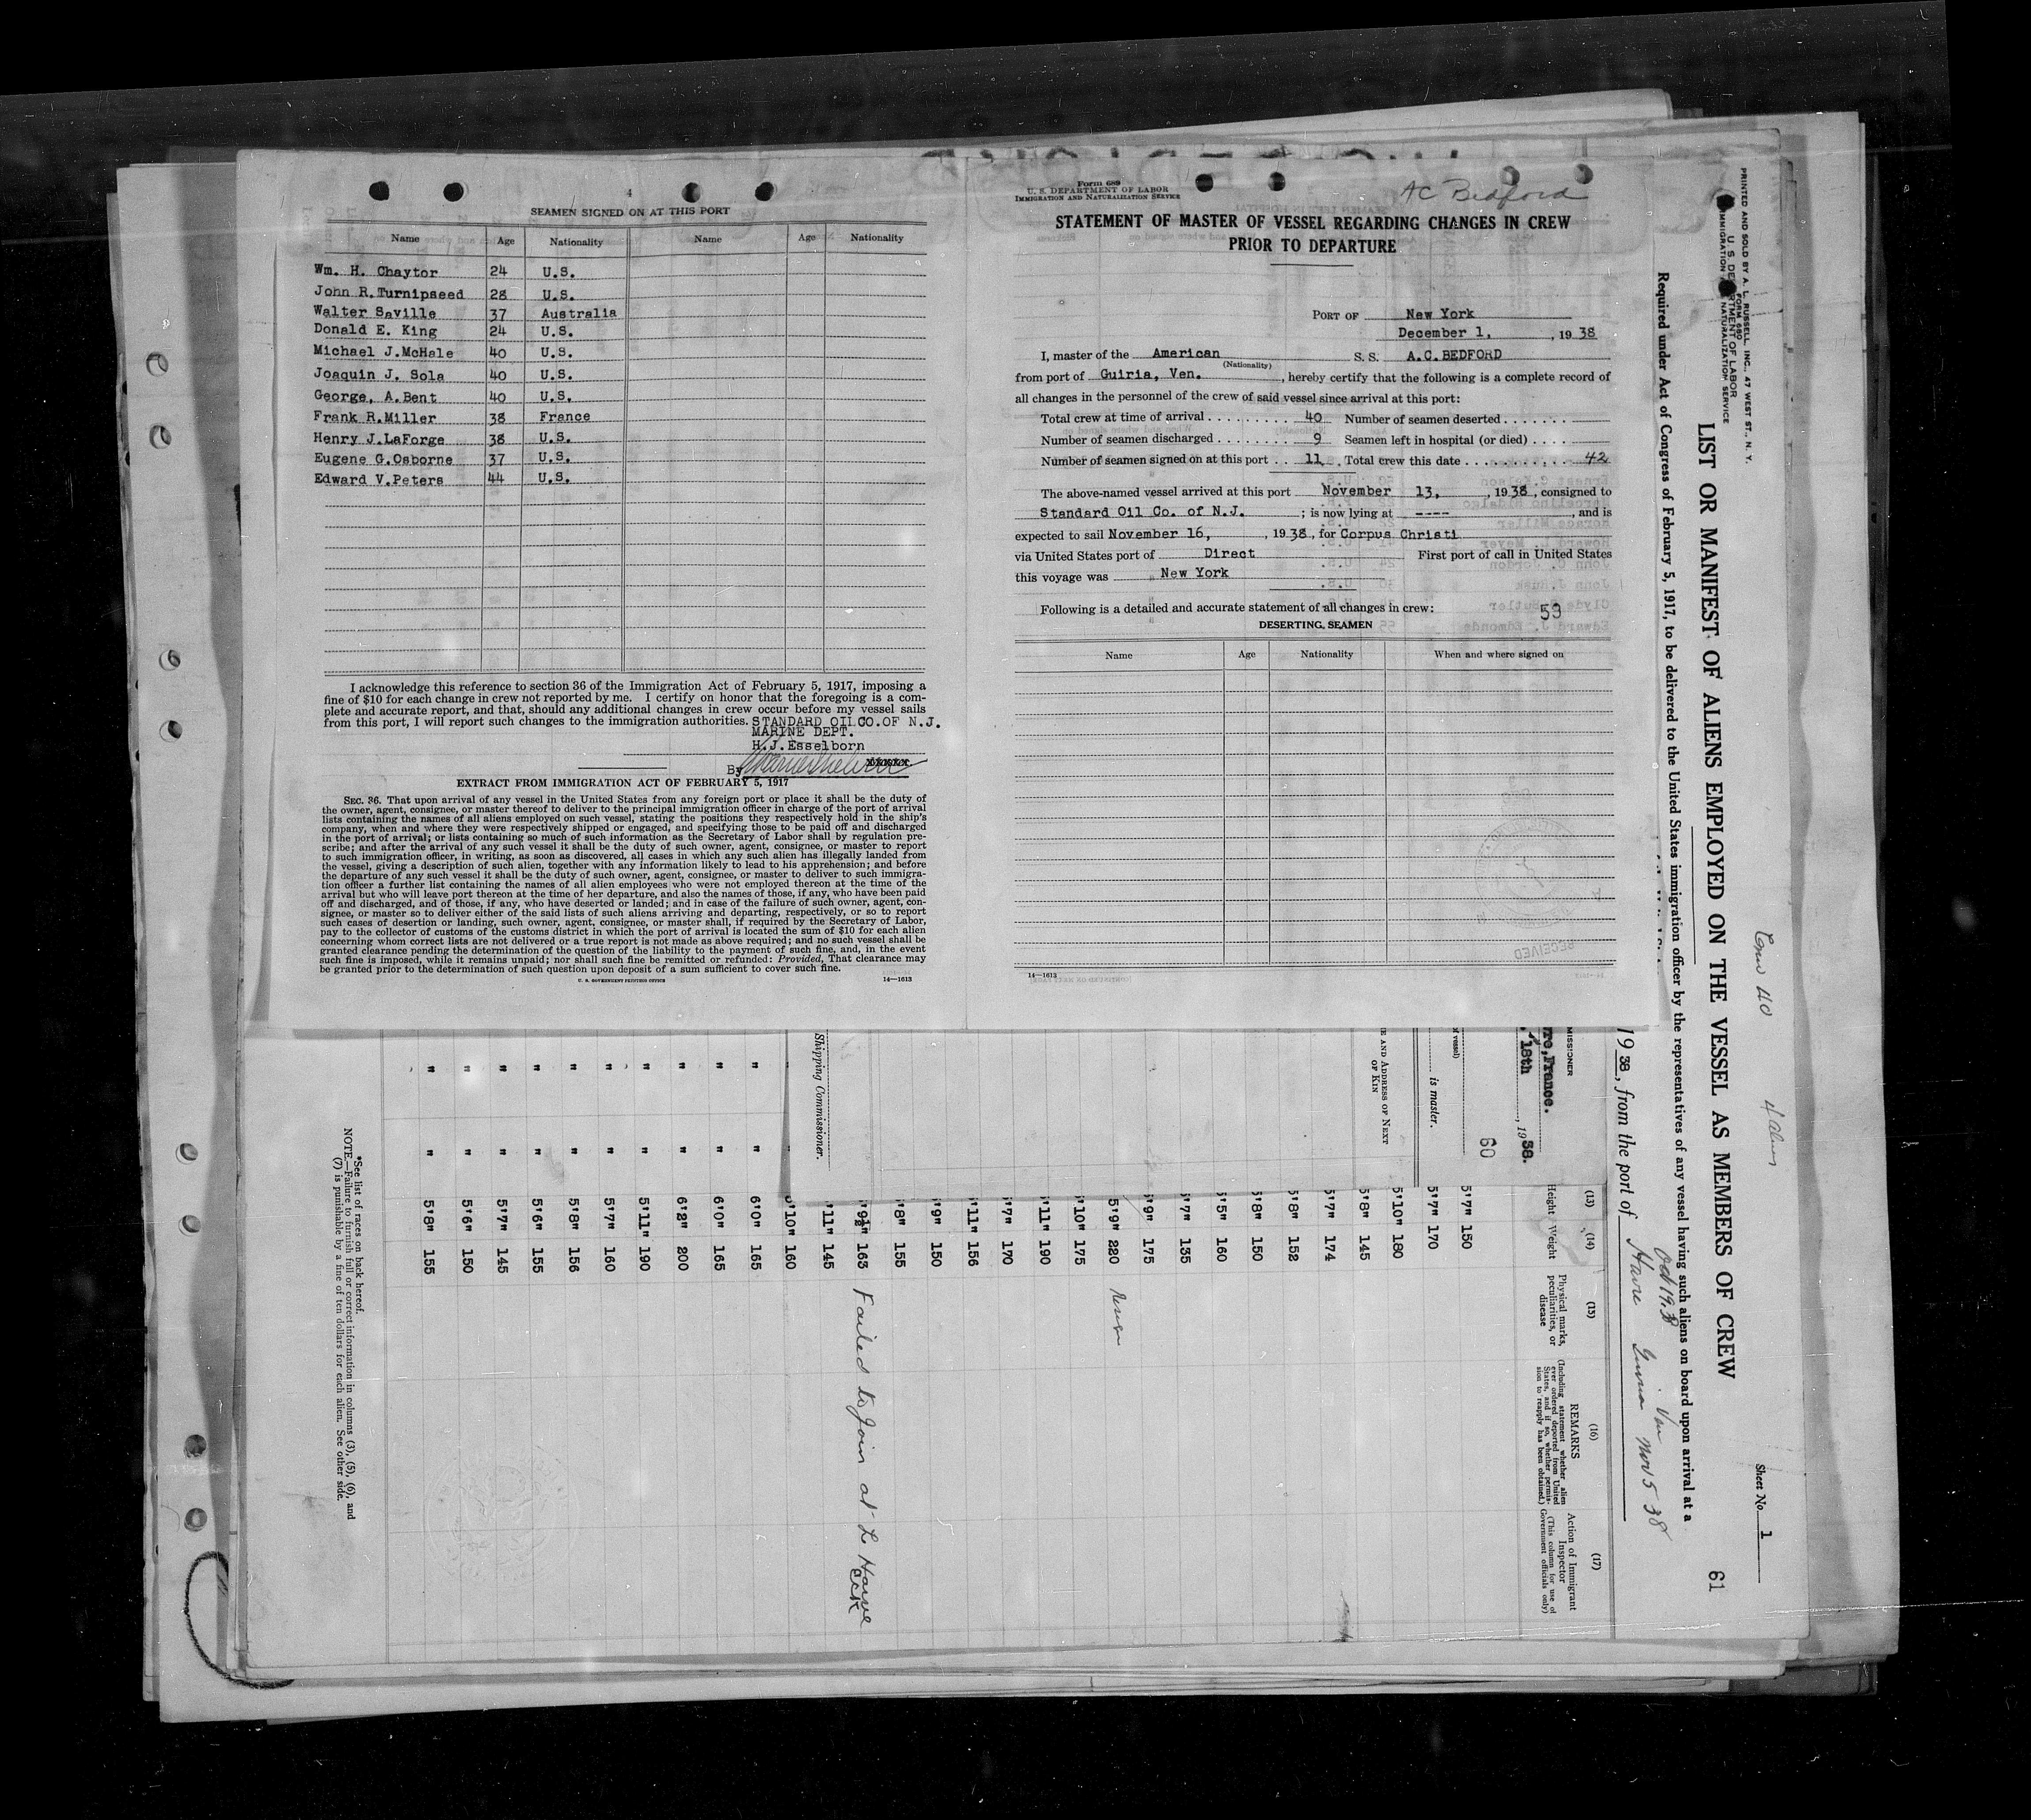 4
SEAMEN SIGNED ON AT THIS PORT
Name Age Nationality Name Age Nationality
Wm. H. Chaytor 24 U.S.
John R. Turnipseed 28 U.S.
Walter Saville 37 Australia
Donald E. King 24 U.S.
Michael J. McHale 40 U.S.
Joaquin J. Sola 40 U.S.
George, A. Bent 40 U.S.
Frank R. Miller 38 France
Henry J. LaForge 38 U.S.
Eugene G. Osborne 37 U.S.
Edward V. Peters 44 U.S.
I acknowledge this reference to section 36 of the Immigration Act of February 5, 1917, imposing a
fine of $10 for each change in crew not reported by me. I certify on honor that the foregoing is a com-
plete and accurate report, and that, should any additional changes in crew occur before my vessel sails
from this port, I will report such changes to the immigration authorities. STANDARD OIL CO. OF N.J.
MARINE DEPT.
H. J. Esselborn
By xxxxx
EXTRACT FROM IMMIGRATION ACT OF FEBRUARY 5, 1917
SEC. 36. That upon arrival of any vessel in the United States from any foreign port or place it shall be the duty of
the owner, agent, consignee, or master thereof to deliver to the principal immigration officer in charge of the port of arrival
lists containing the names of all aliens employed on such vessel, stating the positions they respectively hold in the ship's
company, when and where they were respectively shipped or engaged, and specifying those to be paid off and discharged
in the port of arrival; or lists containing so much of such information as the Secretary of Labor shall by regulation pre-
scribe; and after the arrival of any such vessel it shall be the duty of such owner, agent, consignee, or master to report
to such immigration officer, in writing, as soon as discovered, all cases in which any such alien has illegally landed from
the vessel, giving a description of such alien, together with any information likely to lead to his apprehension; and before
the departure of any such vessel it shall be the duty of such owner, agent, consignee, or master to deliver to such immigra-
tion officer a further list containing the names of all alien employees who were not employed thereon at the time of the
arrival but who will leave port thereon at the time of her departure, and also the names of those, if any, who have been paid
off and discharged, and of those, if any, who have deserted or landed; and in case of the failure of such owner, agent, con-
signee, or master so to deliver either of the said lists of such aliens arriving and departing, respectively, or so to report
such cases of desertion or landing, such owner, agent, consignee, or master shall, if required by the Secretary of Labor,
pay to the collector of customs of the customs district in which the port of arrival is located the sum of $10 for each alien
concerning whom correct lists are not delivered or a true report is not made as above required; and no such vessel shall be
granted clearance pending the determination of the question of the liability to the payment of such fine, and, in the event
such fine is imposed, while it remains unpaid; nor shall such fine be remitted or refunded: Provided, That clearance may
be granted prior to the determination of such question upon deposit of a sum sufficient to cover such fine.
U. S. GOVERNMENT PRINTING OFFICE 14—1613
Form 689
U. S. DEPARTMENT OF LABOR
IMMIGRATION AND NATURALIZATION SERVICE
AC Bedford
STATEMENT OF MASTER OF VESSEL REGARDING CHANGES IN CREW
PRIOR TO DEPARTURE
PORT OF New York
December 1, , 1938
I, master of the American S. S. A.C. BEDFORD
(Nationality)
from port of Guiria, Ven. , hereby certify that the following is a complete record of
all changes in the personnel of the crew of said vessel since arrival at this port:
Total crew at time of arrival 40 Number of seamen deserted
Number of seamen discharged 9 Seamen left in hospital (or died)
Number of seamen signed on at this port 11 Total crew this date 42
The above-named vessel arrived at this port November 13, , 1938, consigned to
Standard Oil Co. of N.J. ; is now lying at ---- , and is
expected to sail November 16, , 1938, for Corpus Christi
via United States port of Direct First port of call in United States
this voyage was New York
Following is a detailed and accurate statement of all changes in crew: 59
DESERTING SEAMEN
Name Age Nationality When and where signed on
RECEIVED
14—1613
PRINTED AND SOLD BY A. L. RUSSELL, INC., 47 WEST ST., N. Y.
FORM 680
U. S. DEPARTMENT OF LABOR
IMMIGRATION NATURALIZATION SERVICE
Crew 40 4 aliens
Sheet No. 1
61
LIST OR MANIFEST OF ALIENS EMPLOYED ON THE VESSEL AS MEMBERS OF CREW
Required under Act of Congress of February 5, 1917, to be delivered to the United States immigration officer by the representatives of any vessel having such aliens on board upon arrival at a
1938, from the port of Havre Oct 19.38 Guiria Ven Nov 5 38
MISSIONER
re, France.
18th , 1938.
60
is master.
E AND ADDRESS OF NEXT
OF KIN
Shipping Commissioner.
(13) (14) (15) (16) (17)
Height Weight Physical marks, peculiarities, or disease
REMARKS
(Including statement whether alien ever ordered deported from United States, and if so, whether permission to reapply has been obtained.)
Action of Immigrant Inspector
(This column for use of Government officials only)
5'7" 150
5'7" 170
5'10" 180
5'8" 145
5'7" 174
5'8" 152
5'8" 150
5'5" 160
5'7" 135
5'9" 175
5'9" 220
'10" 175
'11" 190
'7" 170
'11" 156
'9" 150
'8" 155
'9½" 163 Failed to Join at L Havre
'11" 145
'10" 160
6'0" 165
6'0" 165
6'2" 200
5'11" 190
5'7" 160
5'8" 156
5'6" 155
5'7" 145
5'6" 150
5'8" 155
*See list of races on back hereof.
NOTE.—Failure to furnish full or correct information in columns (3), (5), (6), and
(7) is punishable by a fine of ten dollars for each alien. See other side.